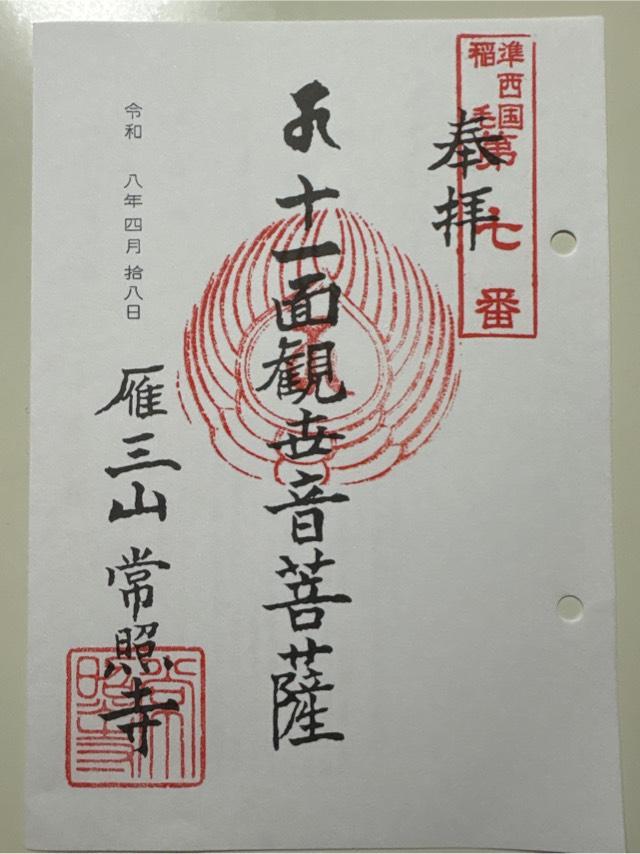 準西国
稲毛
第七番
奉拝
十一面観世音菩薩
雁三山 常照寺
令和 八年四月拾八日
常照寺